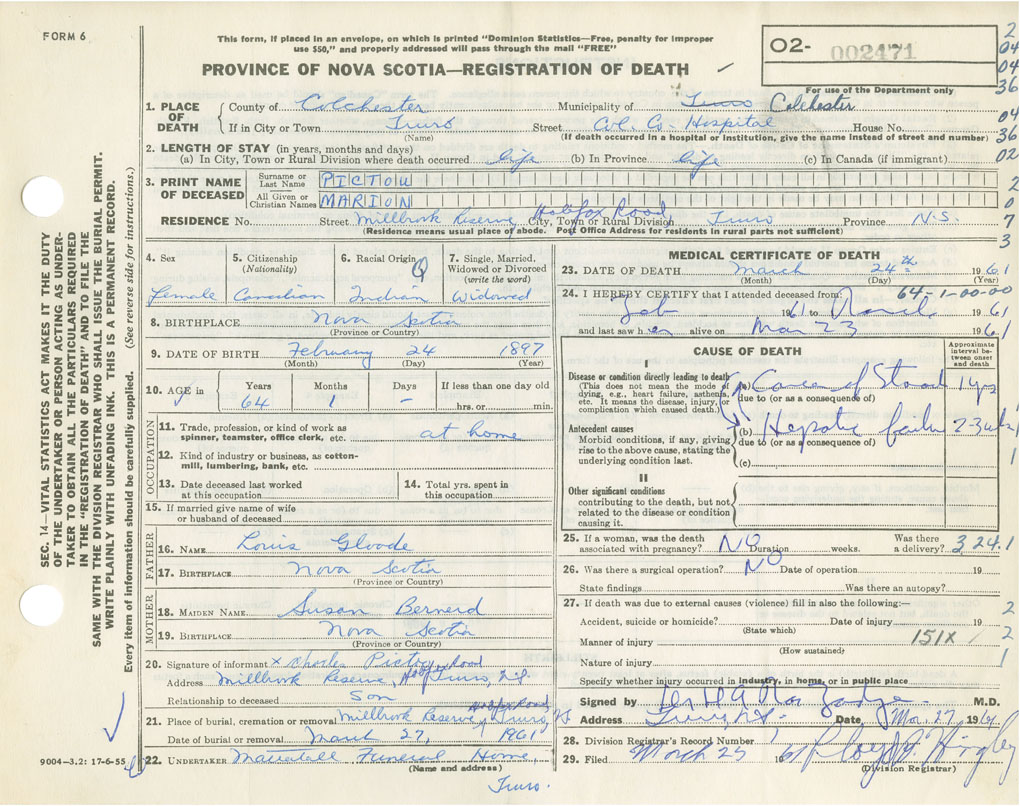 FORM 6
This form, if placed in an envelope, on which is printed "Dominion Statistics—Free, penalty for improper
use $50," and properly addressed will pass through the mail "FREE"
PROVINCE OF NOVA SCOTIA—REGISTRATION OF DEATH
O2- 002471
For use of the Department only
2
04
04
36
04
36
02
2
0
7
3
1. PLACE OF DEATH
County of Colchester Municipality of Truro Colchester
If in City or Town Truro Street Col. Co. Hospital House No.
(Name) (If death occurred in a hospital or institution, give the name instead of street and number)
2. LENGTH OF STAY (in years, months and days)
(a) In City, Town or Rural Division where death occurred life (b) In Province life (c) In Canada (if immigrant)
3. PRINT NAME OF DECEASED
Surname or Last Name PICTOU
All Given or Christian Names MARION
RESIDENCE No. Street Millbrook Reserve, Halifax Road, City, Town or Rural Division Truro Province N.S.
(Residence means usual place of abode. Post Office Address for residents in rural parts not sufficient)
4. Sex
Female
5. Citizenship
(Nationality)
Canadian
6. Racial Origin
Indian
7. Single, Married,
Widowed or Divorced
(write the word)
Widowed
8. BIRTHPLACE Nova Scotia
(Province or Country)
9. DATE OF BIRTH February 24 1897
(Month) (Day) (Year)
10. AGE in
Years Months Days If less than one day old
64 1 – hrs. or min.
OCCUPATION
11. Trade, profession, or kind of work as
spinner, teamster, office clerk, etc. at home
12. Kind of industry or business, as cotton-
mill, lumbering, bank, etc.
13. Date deceased last worked
at this occupation
14. Total yrs. spent in
this occupation
15. If married give name of wife
or husband of deceased
FATHER
16. NAME Louis Gloode
17. BIRTHPLACE Nova Scotia
(Province or Country)
MOTHER
18. MAIDEN NAME Susan Bernerd
19. BIRTHPLACE Nova Scotia
(Province or Country)
20. Signature of informant x Charles Pictou
Address Millbrook Reserve, Road Truro, N.S.
Relationship to deceased Son
21. Place of burial, cremation or removal Millbrook Reserve, Halifax Road, Truro, NS
Date of burial or removal March 27, 1961
22. UNDERTAKER Funeral Home,
(Name and address)
Truro.
MEDICAL CERTIFICATE OF DEATH
23. DATE OF DEATH March 24th 1961
(Month) (Day)
24. I HEREBY CERTIFY that I attended deceased from: 64-1-00-00
Feb 1961 to March 1961
and last saw her alive on Mar 23 1961
CAUSE OF DEATH
Approximate
interval be-
tween onset
and death
I
Disease or condition directly leading to death
(This does not mean the mode of
dying, e.g., heart failure, asthenia,
etc. It means the disease, injury, or
complication which caused death.)
(a) 1 yr
due to (or as a consequence of)
Antecedent causes
Morbid conditions, if any, giving
rise to the above cause, stating the
underlying condition last.
(b) Hepatic failure 2-3 wks
due to (or as a consequence of)
(c)
II
Other significant conditions
contributing to the death, but not
related to the disease or condition
causing it.
1
1
25. If a woman, was the death
associated with pregnancy? NO Duration weeks.
Was there
a delivery? 324.1
26. Was there a surgical operation? NO Date of operation 19
State findings Was there an autopsy?
27. If death was due to external causes (violence) fill in also the following:—
Accident, suicide or homicide? Date of injury 19
(State which)
Manner of injury 151X
(How sustained)
Nature of injury
2
2
1
Specify whether injury occurred in industry, in home, or in public place
Signed by M.D.
Address Truro, N.S. Date, Mar. 27 1961
28. Division Registrar's Record Number
29. Filed March 25 1961
(Division Registrar)
SEC. 14—VITAL STATISTICS ACT MAKES IT THE DUTY
OF THE UNDERTAKER OR PERSON ACTING AS UNDER-
TAKER TO OBTAIN ALL THE PARTICULARS REQUIRED
IN THE "REGISTRATION OF DEATH" AND TO FILE THE
SAME WITH THE DIVISION REGISTRAR WHO SHALL ISSUE THE BURIAL PERMIT.
WRITE PLAINLY WITH UNFADING INK. THIS IS A PERMANENT RECORD.
Every item of information should be carefully supplied. (See reverse side for instructions.)
9004-3.2: 17-6-55